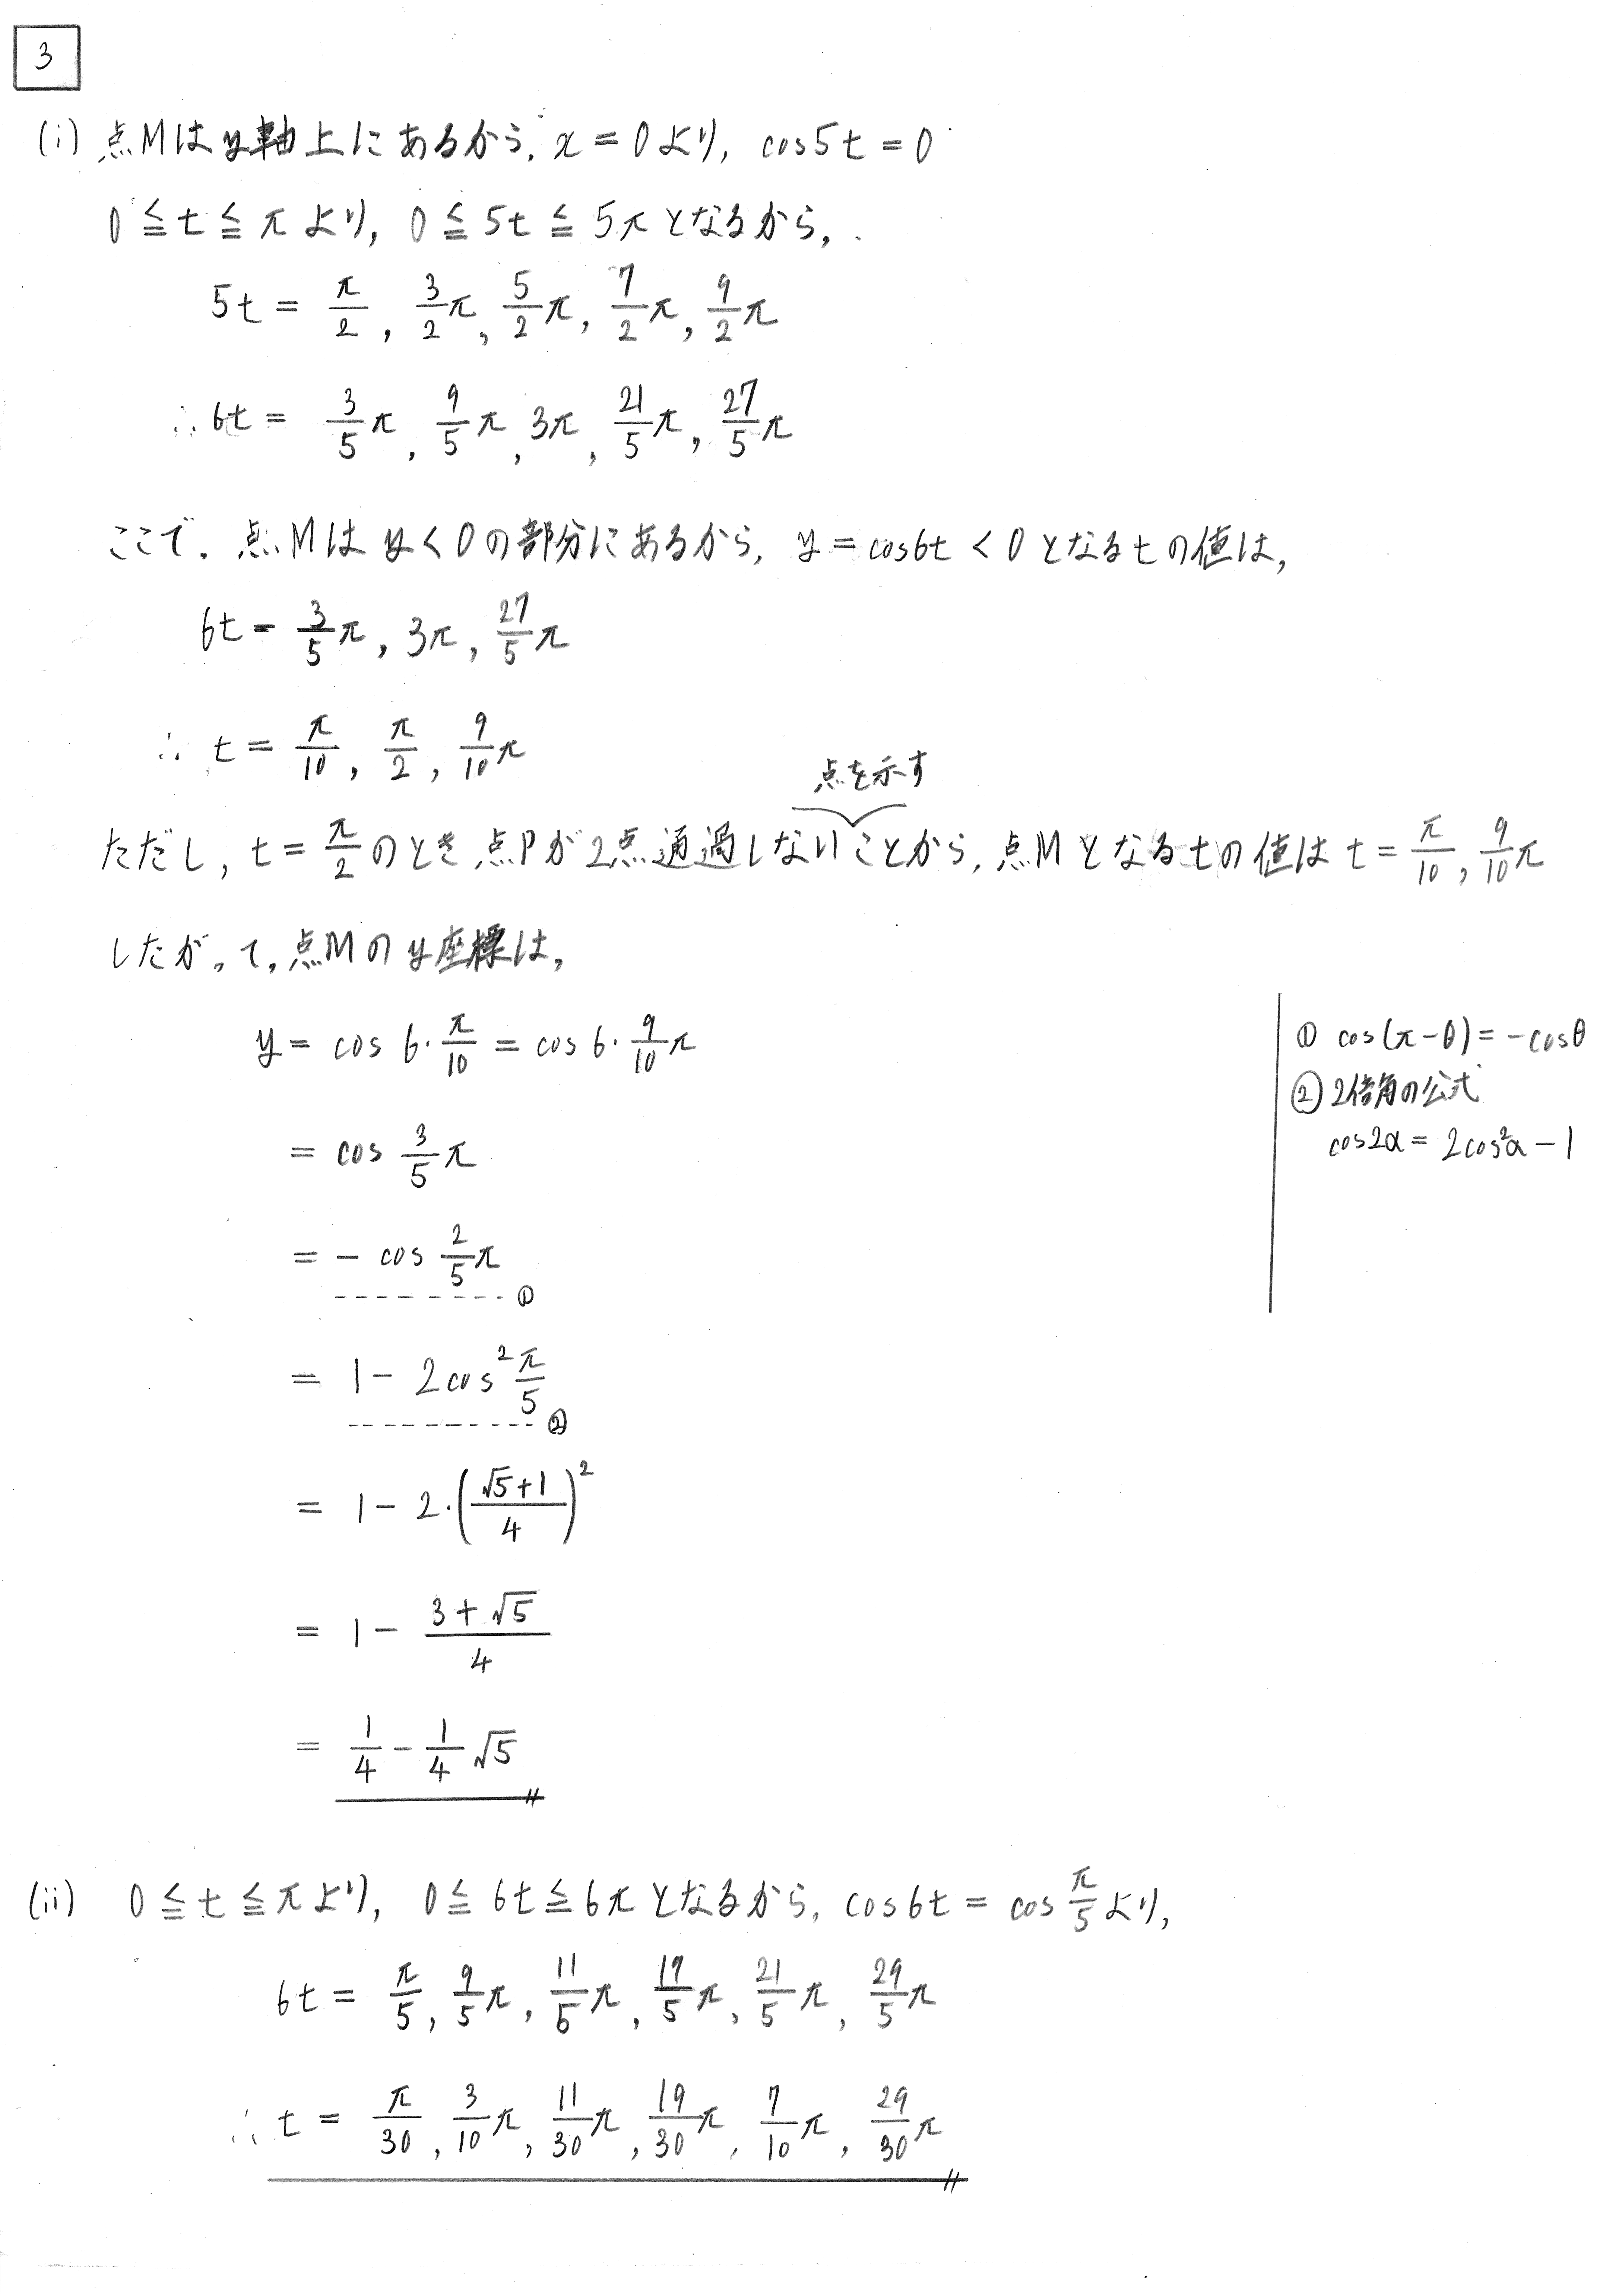 3
(i) 点Mはy軸上にあるから, x = 0 より, cos5t = 0
0 ≦ t ≦ π より, 0 ≦ 5t ≦ 5π となるから,
5t = π/2, 3/2 π, 5/2 π, 7/2 π, 9/2 π
∴ 6t = 3/5 π, 9/5 π, 3π, 21/5 π, 27/5 π
ここで, 点Mは y < 0 の部分にあるから, y = cos6t < 0 となる t の値は,
6t = 3/5 π, 3π, 27/5 π
∴ t = π/10, π/2, 9/10 π
点を示す
ただし, t = π/2 のとき 点Pが2点通過しないことから, 点Mとなる t の値は t = π/10, 9/10 π
したがって, 点Mのy座標は,
y = cos 6・π/10 = cos 6・9/10 π
= cos 3/5 π
= - cos 2/5 π ①
= 1 - 2cos² π/5 ②
= 1 - 2・((√5+1)/4)²
= 1 - (3+√5)/4
= 1/4 - 1/4 √5
① cos(π-θ) = -cosθ
② 2倍角の公式
cos2α = 2cos²α - 1
(ii) 0 ≦ t ≦ π より, 0 ≦ 6t ≦ 6π となるから, cos6t = cos π/5 より,
6t = π/5, 9/5 π, 11/5 π, 19/5 π, 21/5 π, 29/5 π
∴ t = π/30, 3/10 π, 11/30 π, 19/30 π, 7/10 π, 29/30 π